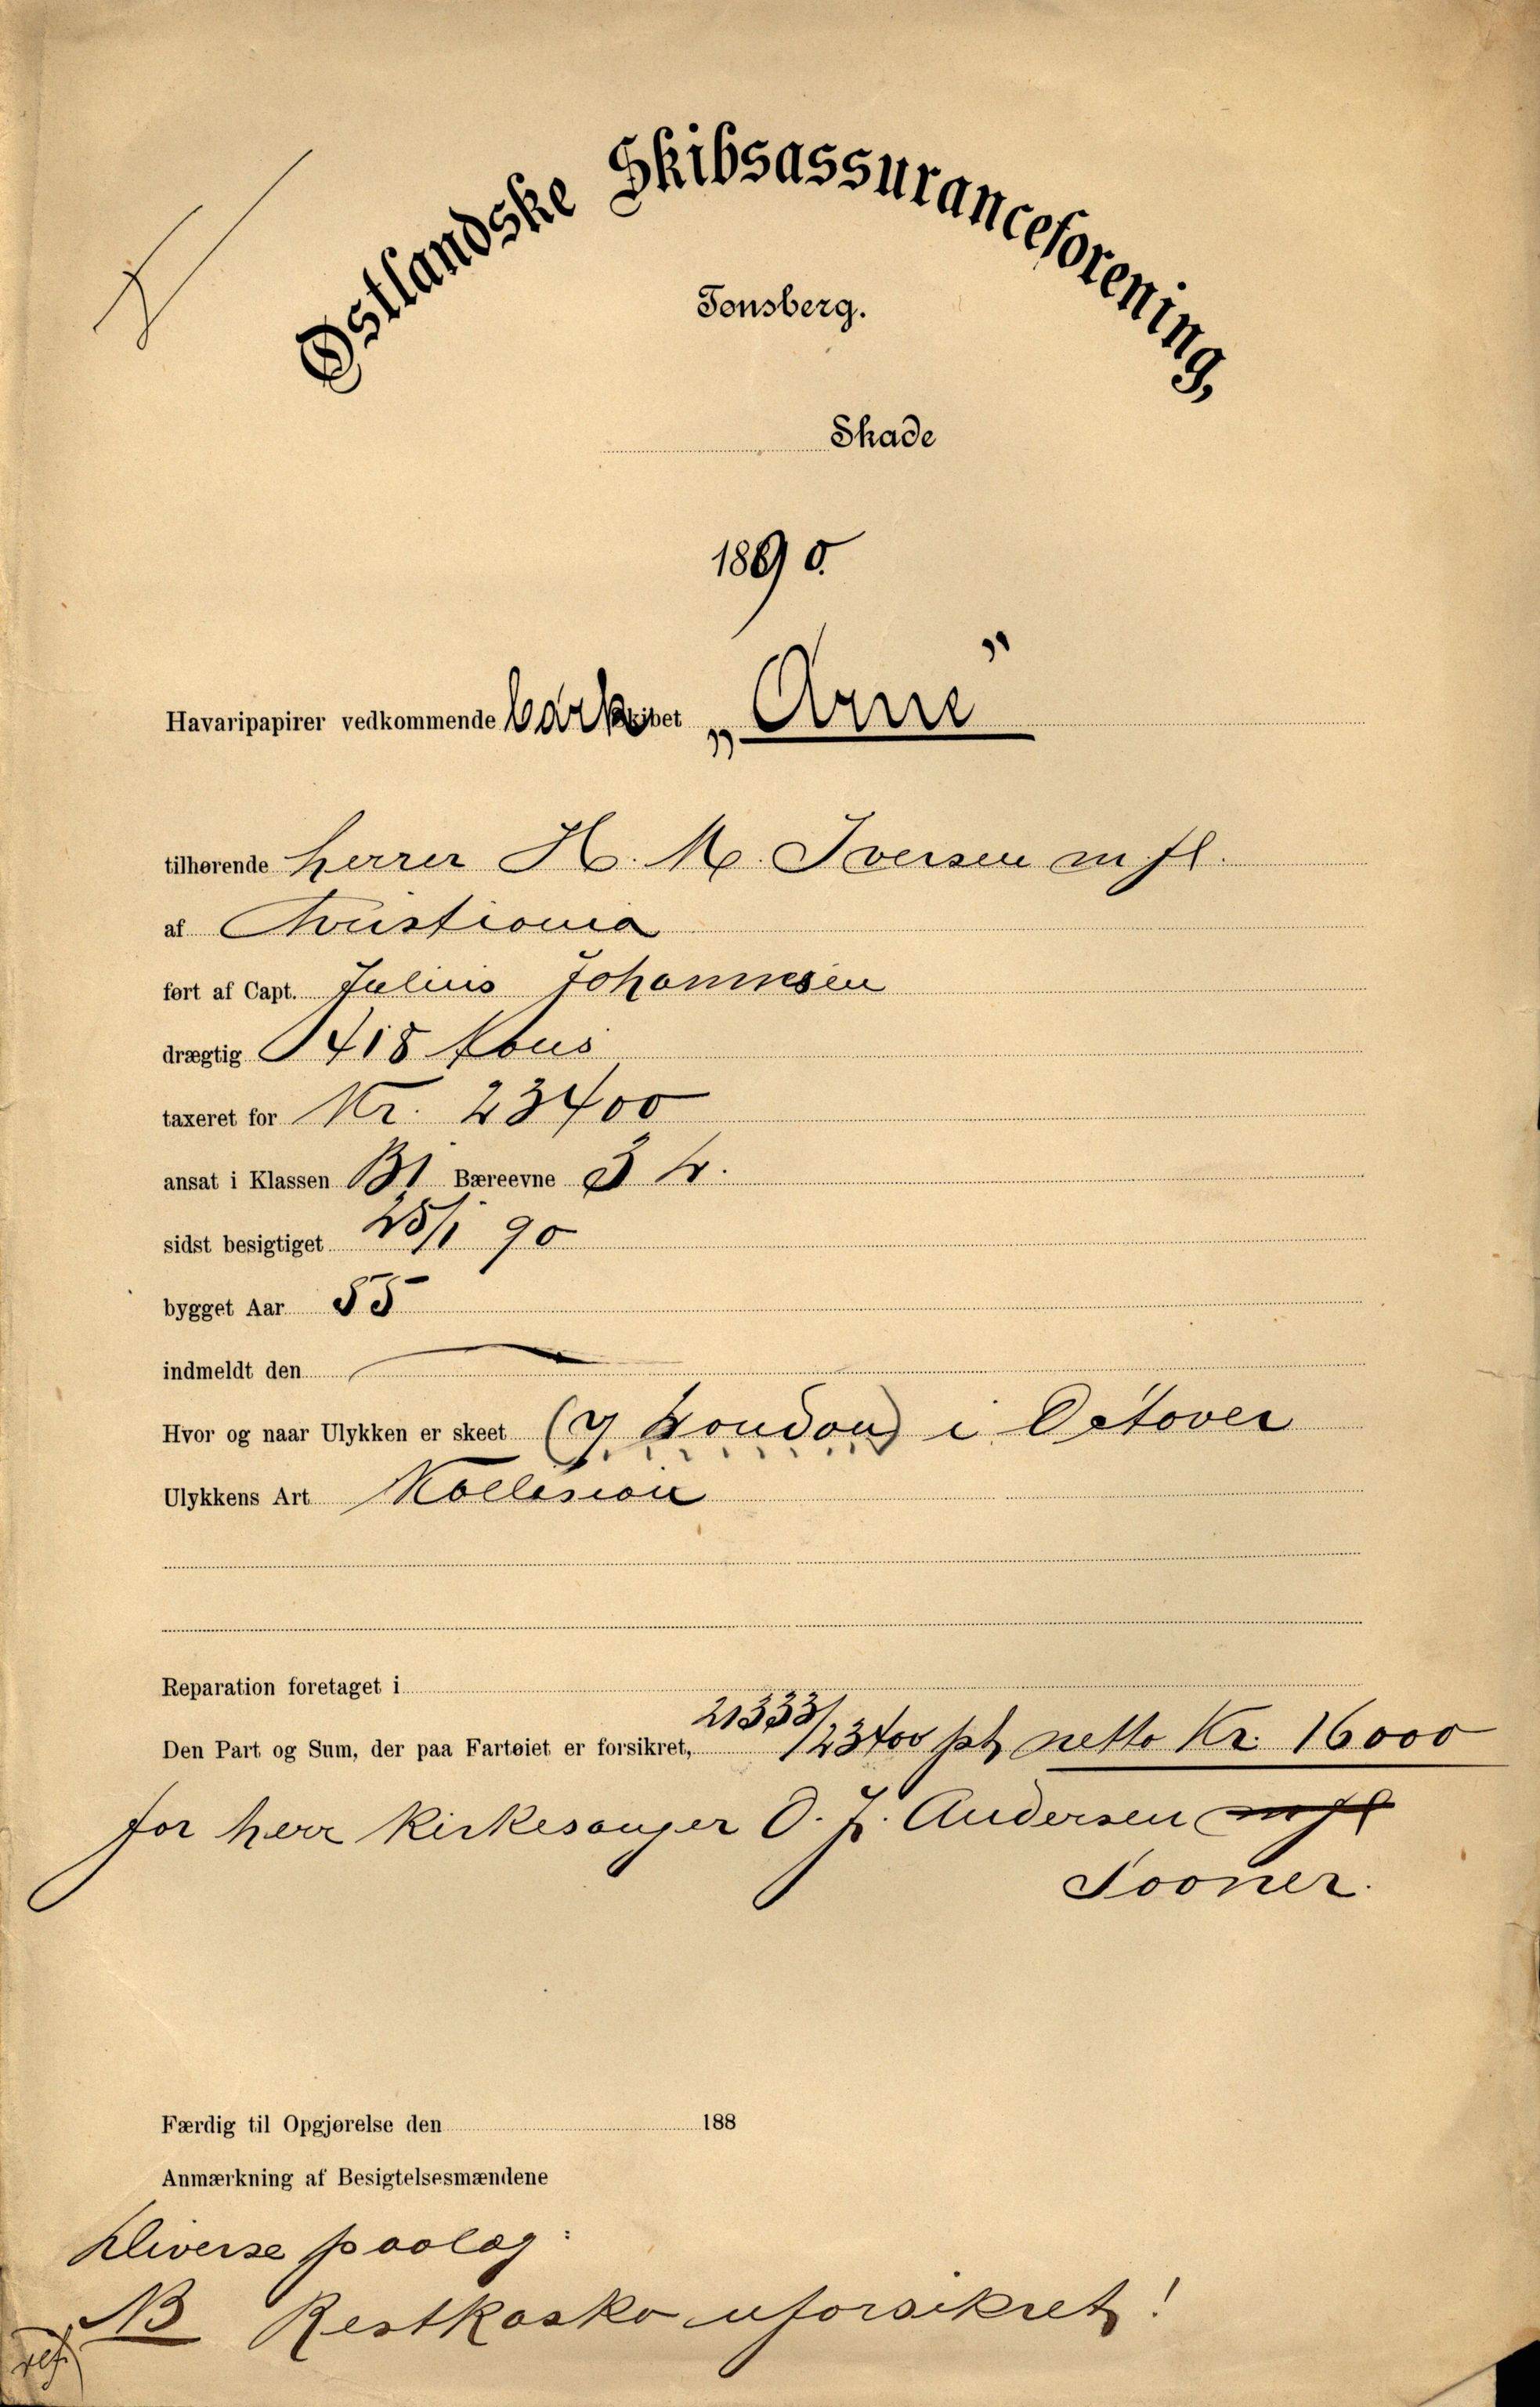 Østlandske Skibsassuranceforening,
Tønsberg.
Skade
1890.
Havaripapirer vedkommende barkskibet „Arne”
tilhørende herrer H. M. Iversen m fl.
af Christiania
ført af Capt. Julius Johannesen
drægtig 418 tons
taxeret for Kr. 23400
ansat i Klassen B1 Bæreevne 3 
sidst besigtiget 25/1 90
bygget Aar 55
indmeldt den
Hvor og naar Ulykken er skeet (i London) i October
Ulykkens Art Kollision
Reparation foretaget i
Den Part og Sum, der paa Fartøiet er forsikret, 21333/23400 pt netto Kr. 16000
for herr Kirkesanger O. J. Andersen m fl
Sooner.
Færdig til Opgjørelse den 188
Anmærkning af Besigtelsesmændene
Diverse paalæg:
NB Restkasko uforsikret!